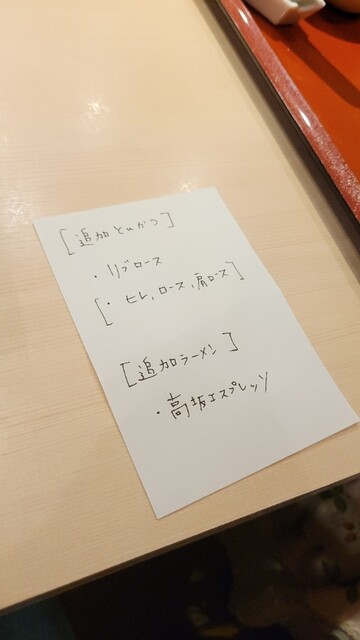 [追加とんかつ]
・リブロース
[・ヒレ、ロース、肩ロース]
[追加ラーメン]
・高坂エスプレッソ